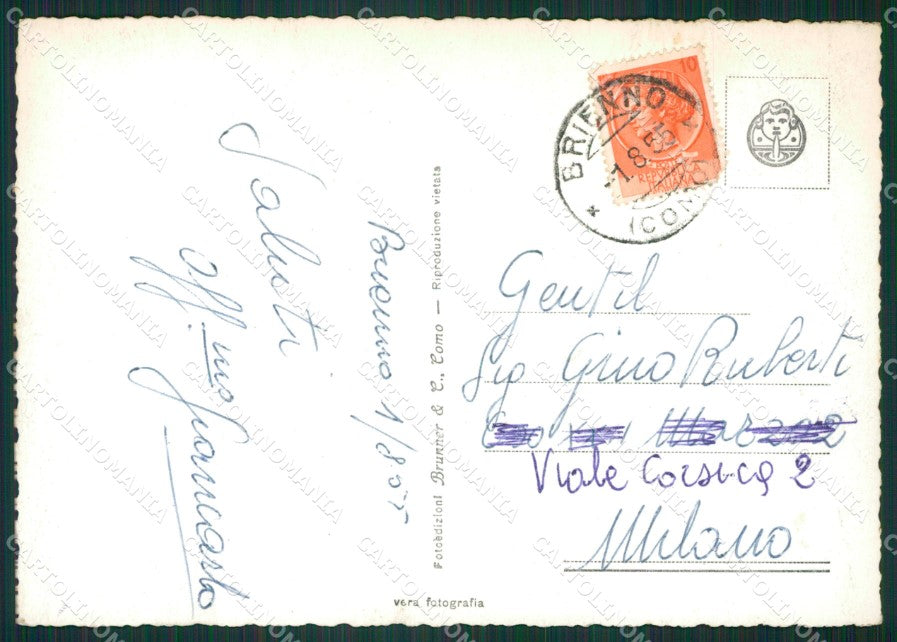 Saluti
aff.mo Giancarlo
Brienno 1/8 55
Fotoedizioni Brunner & C., Como — Riproduzione vietata
vera fotografia
10
BRIENNO
-1.8.55
(COMO)
Gentil
Sig Gino Ruberti
Viale Corsica 2
Milano
CARTOLINOMANIA